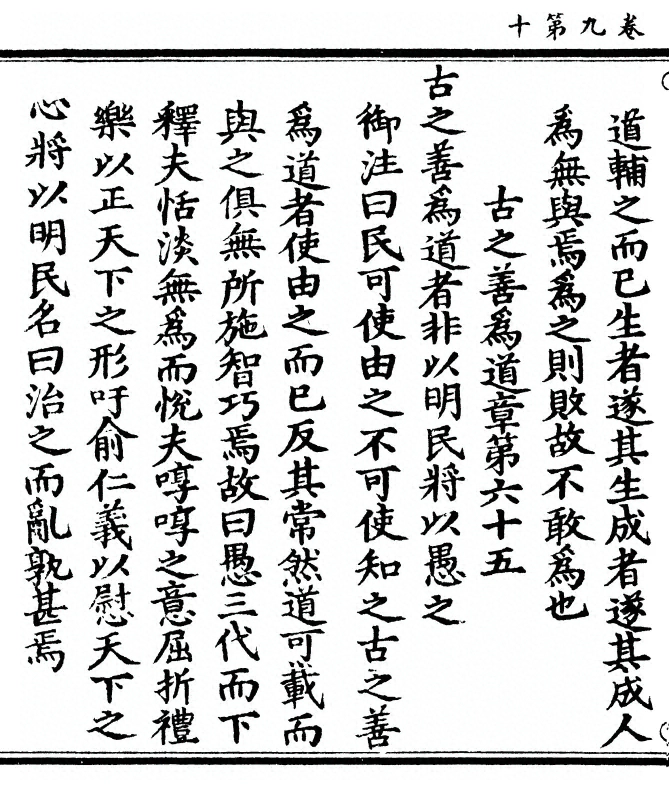 卷九第十
道輔之而已生者遂其生成者遂其成人
爲無與焉爲之則敗故不敢爲也
古之善爲道章第六十五
古之善爲道者非以明民將以愚之
御注曰民可使由之不可使知之古之善
爲道者使由之而已反其常然道可載而
與之俱無所施智巧焉故曰愚三代而下
釋夫恬淡無爲而悅夫啍啍之意屈折禮
樂以正天下之形吁俞仁義以慰天下之
心將以明民名曰治之而亂孰甚焉